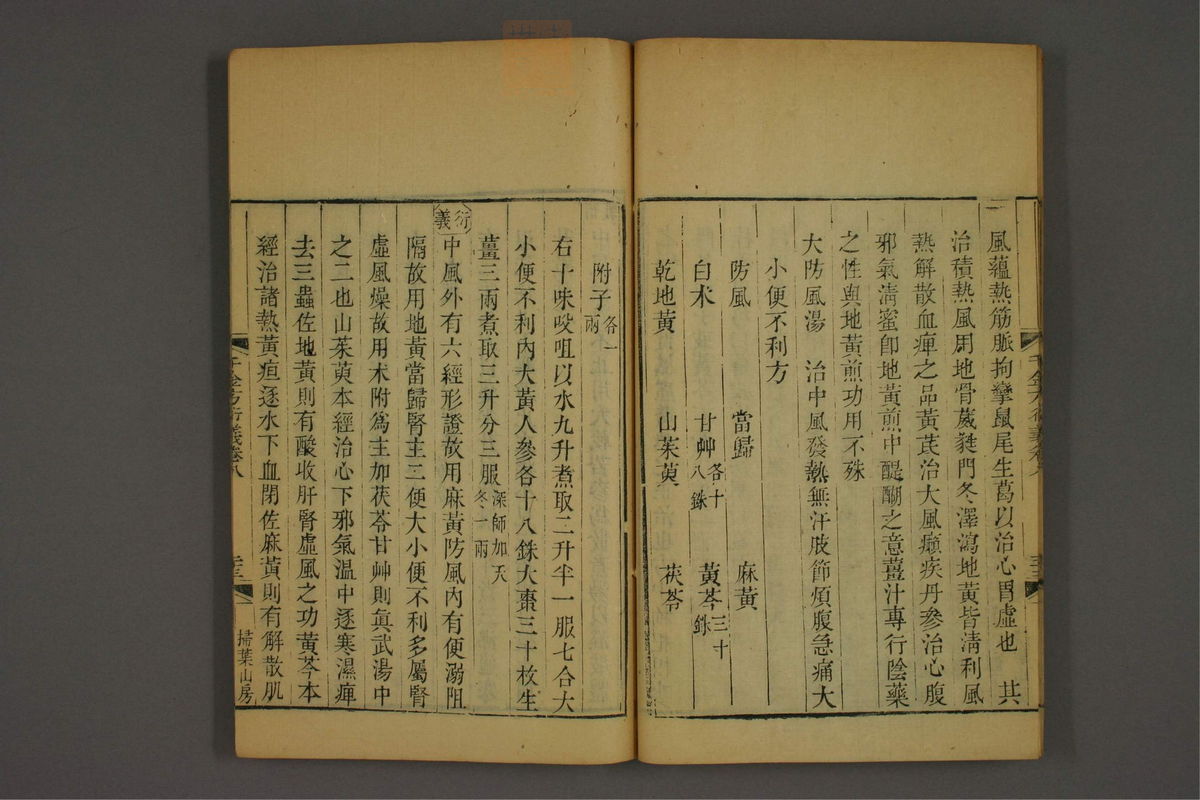 風蘊熱筋脈拘攣鼠尾生葛以治心胃虛也　其
治積熱風用地骨葳蕤門冬澤瀉地黃皆清利風
熱解散血痺之品黃芪治大風癩疾丹參治心腹
邪氣淸蜜卽地黃煎中醍醐之意薑汁專行陰藥
之性與地黃煎功用不殊
大防風湯　治中風發熱無汗肢節煩腹急痛大
小便不利方
防風　當歸　麻黃
白朮　甘艸各十八銖　黃芩三十銖
乾地黃　山茱萸　茯苓
附子各一兩
右十味㕮咀以水九升煮取二升半一服七合大
小便不利內大黃人參各十八銖大棗三十枚生
薑三兩煮取三升分三服深師加天冬一兩
衍義
中風外有六經形證故用麻黃防風內有便溺阻
隔故用地黃當歸腎主二便大小便不利多屬腎
虛風燥故用朮附爲主加茯苓甘艸則眞武湯中
之二也山茱萸本經治心下邪氣溫中逐寒濕痺
去三蟲佐地黃則有酸收肝腎虛風之功黃芩本
經治諸熱黃疸逐水下血閉佐麻黃則有解散肌
千金方衍義卷八
掃葉山房